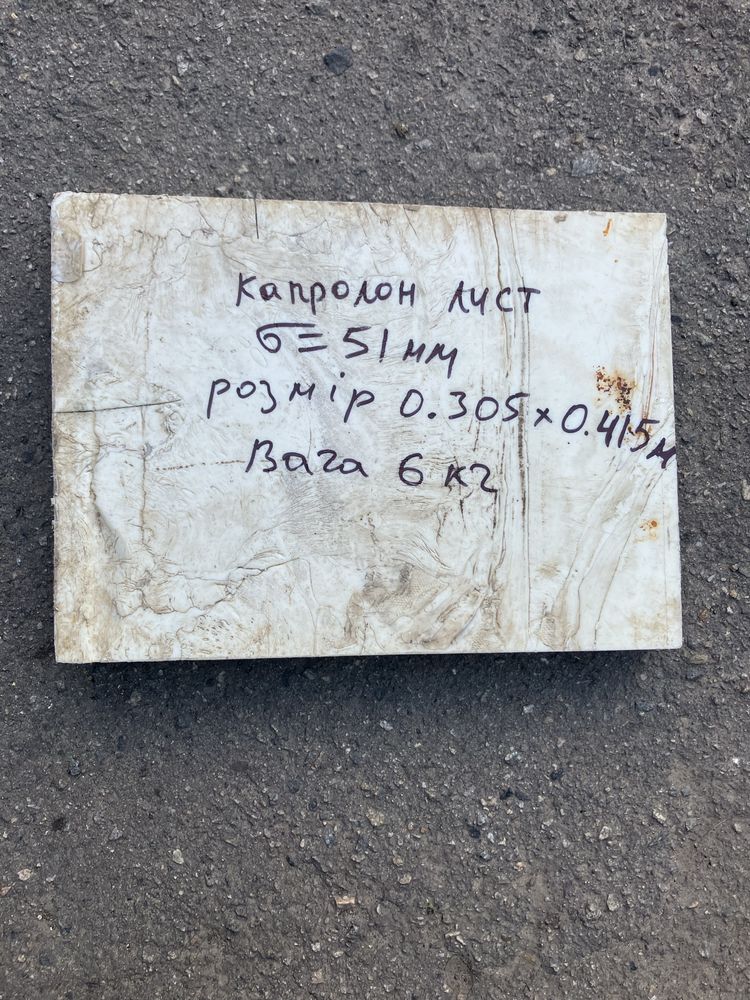 Капролон лист
б = 51 мм
розмір 0.305 х 0.415 м
Вага 6 кг